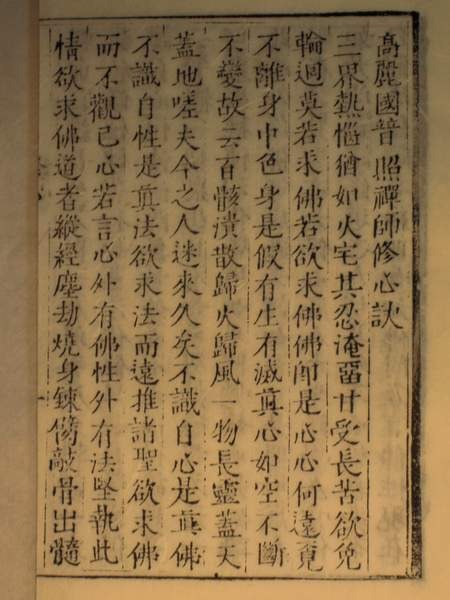 高麗國普照禪師修心訣
三界熱惱猶如火宅其忍淹畱甘受長苦欲免
輪迴莫若求佛若欲求佛佛卽是心心何遠覓
不離身中色身是假有生有滅眞心如空不斷
不變故云百骸潰散歸火歸風一物長靈蓋天
蓋地嗟夫今之人迷來久矣不識自心是眞佛
不識自性是眞法欲求法而遠推諸聖欲求佛
而不觀己心若言心外有佛性外有法堅執此
情欲求佛道者縱經塵劫燒身鍊臂敲骨出髓